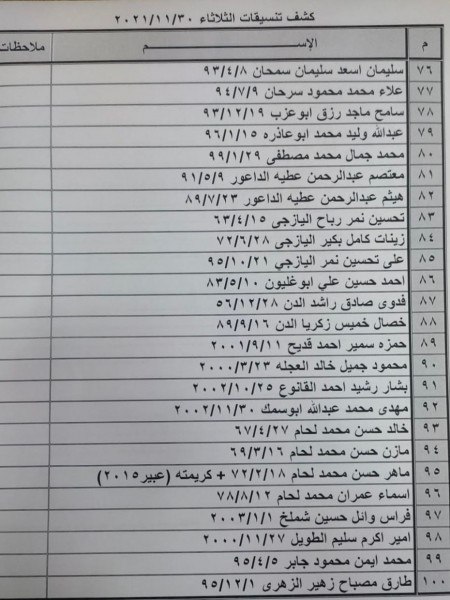 كشف تنسيقات الثلاثاء ٢٠٢١/١١/٣٠
م الإســـــم ملاحظات
٧٦ سليمان اسعد سليمان سمحان ٩٣/٤/٨
٧٧ علاء محمد محمود سرحان ٩٤/٧/٩
٧٨ سامح ماجد رزق ابوعزب ٩٣/١٢/١٩
٧٩ عبدالله وليد محمد ابوعاذره ٩٦/١/١٥
٨٠ محمد جمال محمد مصطفى ٩٩/١/٢٩
٨١ معتصم عبدالرحمن عطيه الداعور ٩١/٥/٩
٨٢ هيثم عبدالرحمن عطيه الداعور ٨٩/٧/٢٣
٨٣ تحسين نمر رباح اليازجي ٦٣/٤/١٥
٨٤ زينات كامل بكير اليازجي ٧٢/٦/٢٨
٨٥ على تحسين نمر اليازجي ٩٥/١٠/٢١
٨٦ احمد حسين علي ابوغليون ٨٣/٥/١٠
٨٧ فدوى صادق راشد الدن ٥٦/١٢/٢٨
٨٨ خصال خميس زكريا الدن ٨٩/٩/١٦
٨٩ حمزه سمير احمد قديح ٢٠٠١/٩/١١
٩٠ محمود جميل خالد العجله ٢٠٠٠/٣/٢٣
٩١ بشار رشيد احمد القانوع ٢٠٠٢/١٠/٢٥
٩٢ مهدى محمد عبدالله ابوسمك ٢٠٠٢/١١/٣٠
٩٣ خالد حسن محمد لحام ٦٧/٤/٢٧
٩٤ مازن حسن محمد لحام ٦٩/٣/١٦
٩٥ ماهر حسن محمد لحام ٧٢/٢/١٨ + كريمته (عبير٢٠١٥)
٩٦ اسماء عمران محمد لحام ٧٨/٨/١٢
٩٧ فراس وائل حسين شملخ ٢٠٠٣/١/١
٩٨ امير اكرم سليم الطويل ٢٠٠٠/١١/٢٧
٩٩ محمد ايمن محمود جابر ٩٥/٤/٥
١٠٠ طارق مصباح زهير الزهرى ٩٥/١٢/١